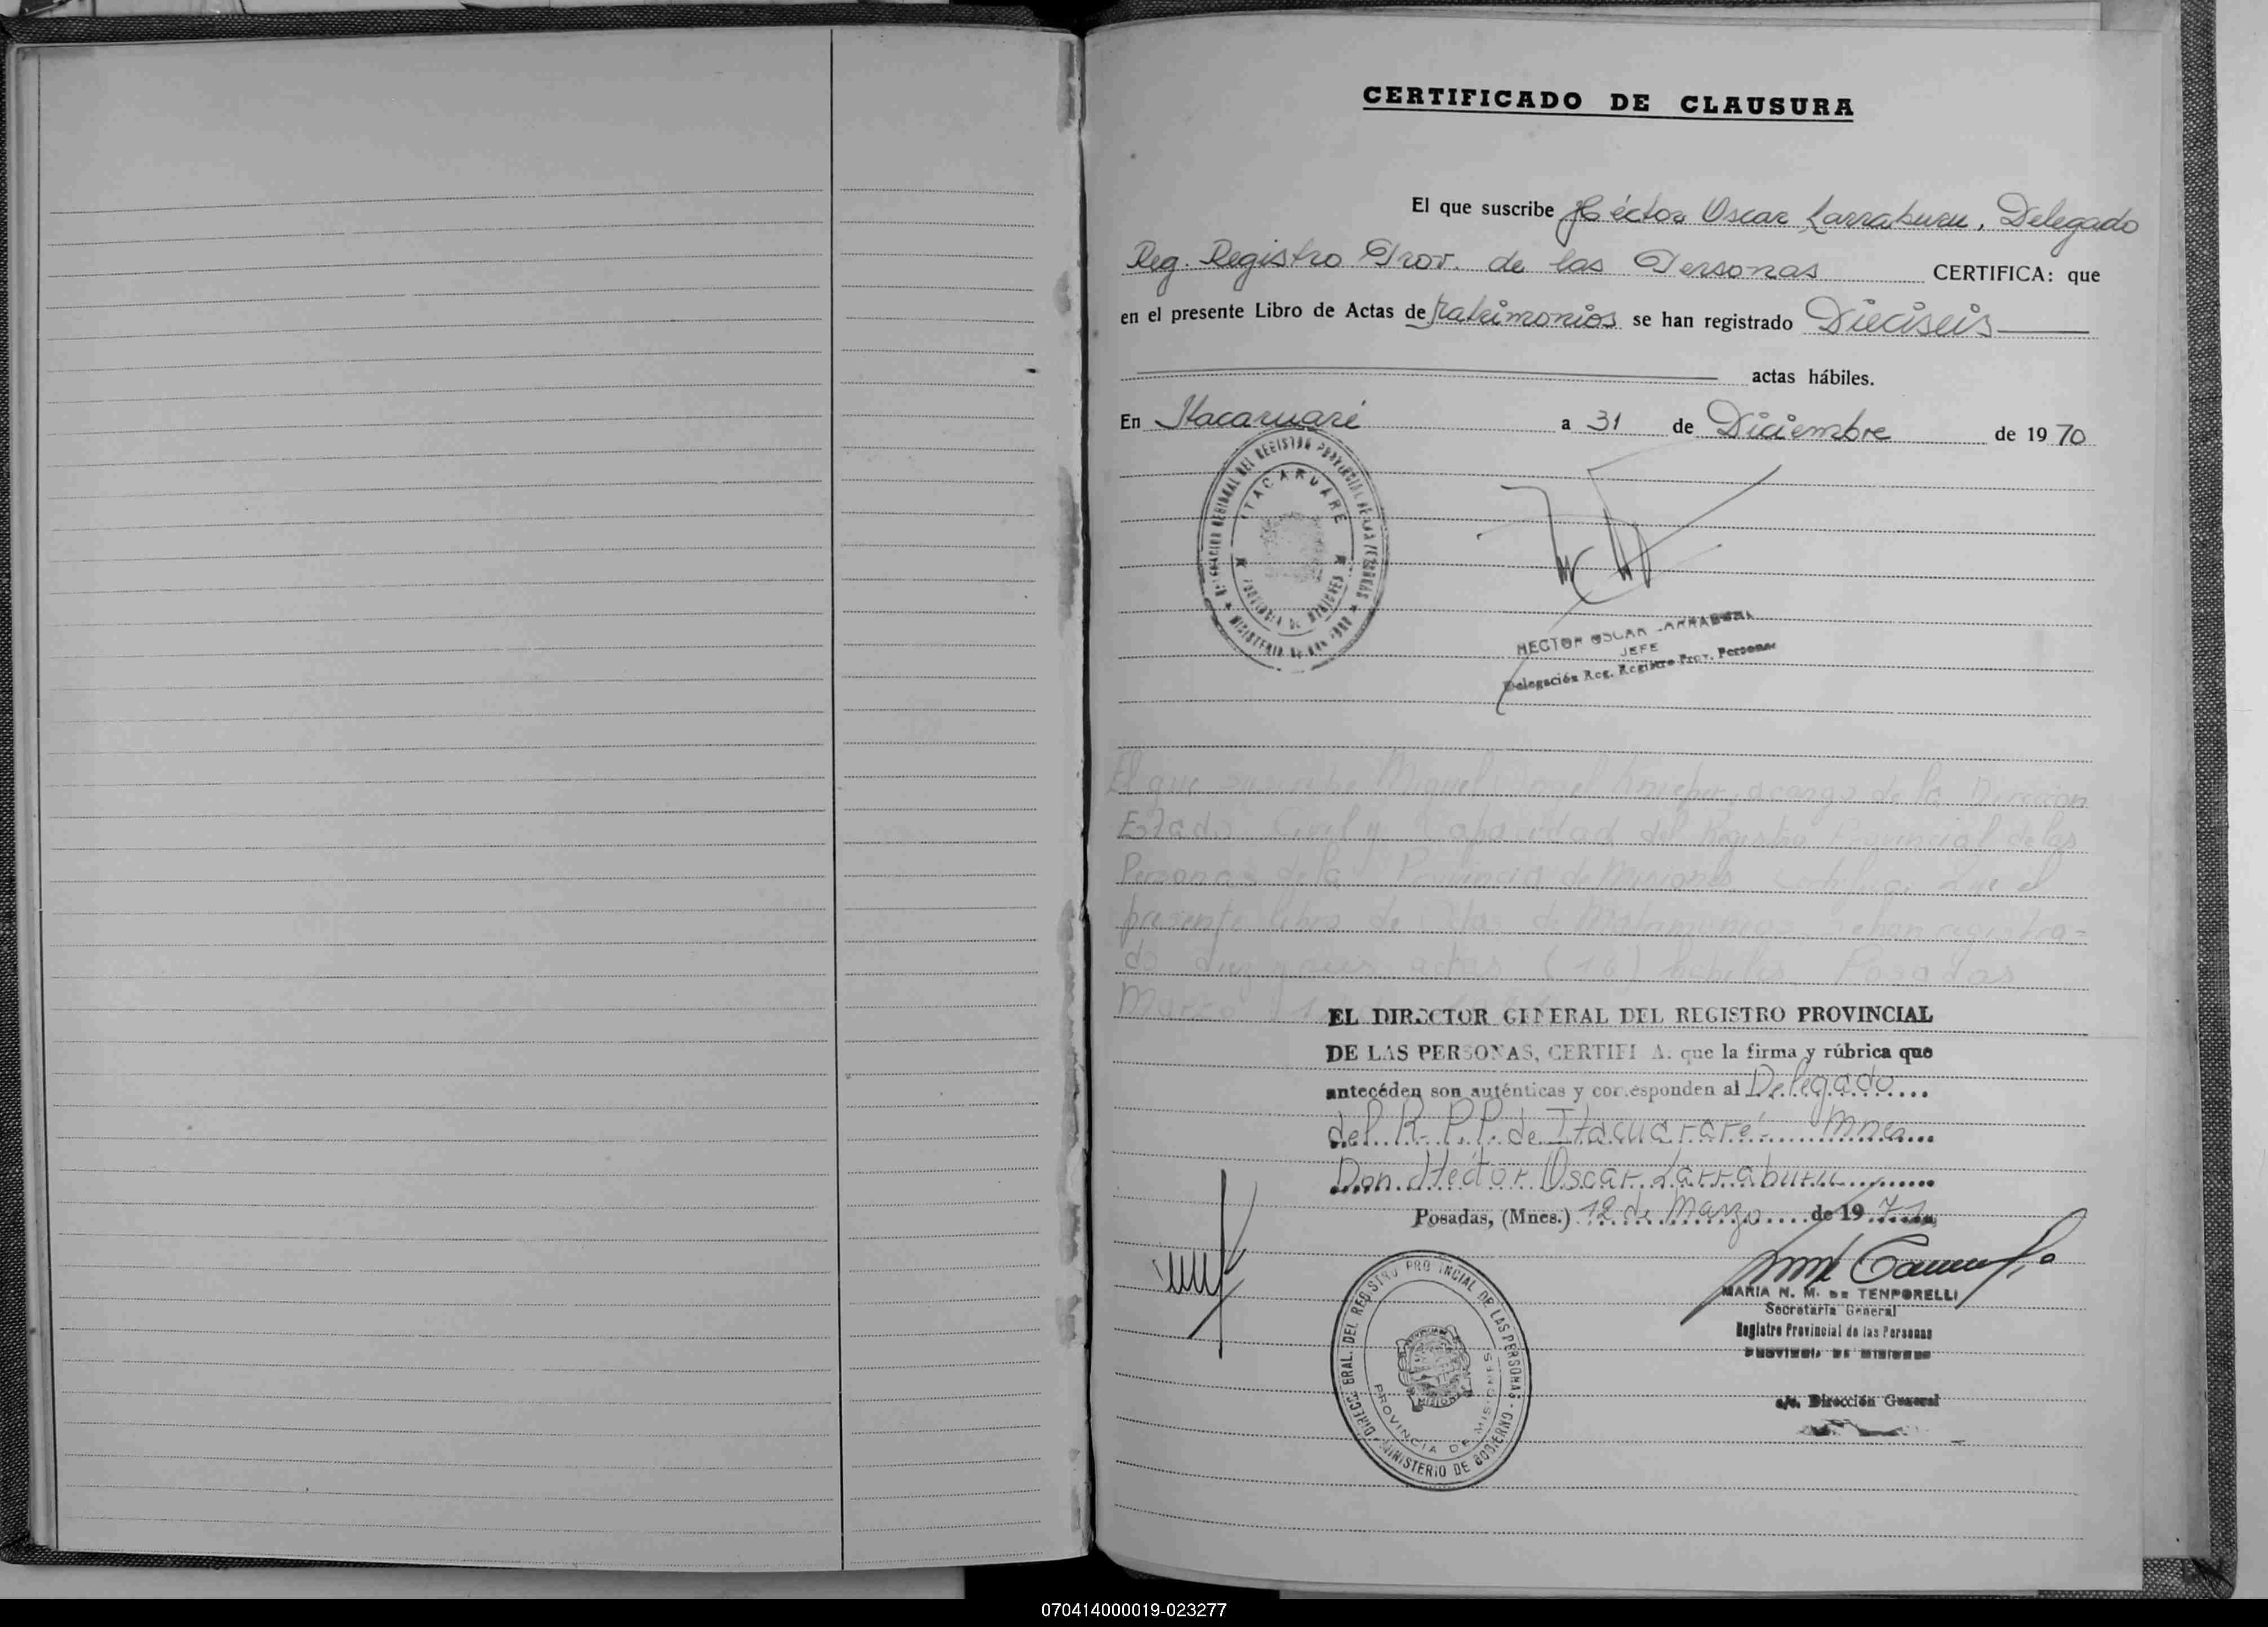 CERTIFICADO DE CLAUSURA
El que suscribe Héctor Oscar Larraburu, Delegado
Reg. Registro Prov. de las Personas CERTIFICA: que
en el presente Libro de Actas de Matrimonios se han registrado Dieciseis
actas hábiles.
En Itacaruaré a 31 de Diciembre de 1970
ITACARUARE
PROVINCIA DE MISIONES
HECTOR OSCAR LARRABURU
JEFE
Delegación Reg. Registro Prov. Personas
El que suscribe Miguel Angel a cargo de la Dirección
Estado Civil y Capacidad del Registro Provincial de las
Personas de la Provincia de Misiones Certifica: Que el
presente libro de Actas de Matrimonios se han registra-
do diez y seis actas (16) hábiles. Posadas
Marzo
EL DIRECTOR GENERAL DEL REGISTRO PROVINCIAL
DE LAS PERSONAS, CERTIFI A. que la firma y rúbrica que
antecéden son auténticas y corresponden al Delegado
del R. P. P. de Itacuararé Mnes
Don Héctor Oscar Larraburu
Posadas, (Mnes.) 12 de Marzo de 1971
DIRECC. GRAL. DEL REGISTRO PROVINCIAL DE LAS PERSONAS - MINISTERIO DE GOBIERNO
PROVINCIA DE MISIONES
MARIA N. M. DE TENPORELLI
Secretaria General
Registro Provincial de las Personas
PROVINCIA DE MISIONES
a/c. Dirección General
070414000019-023277